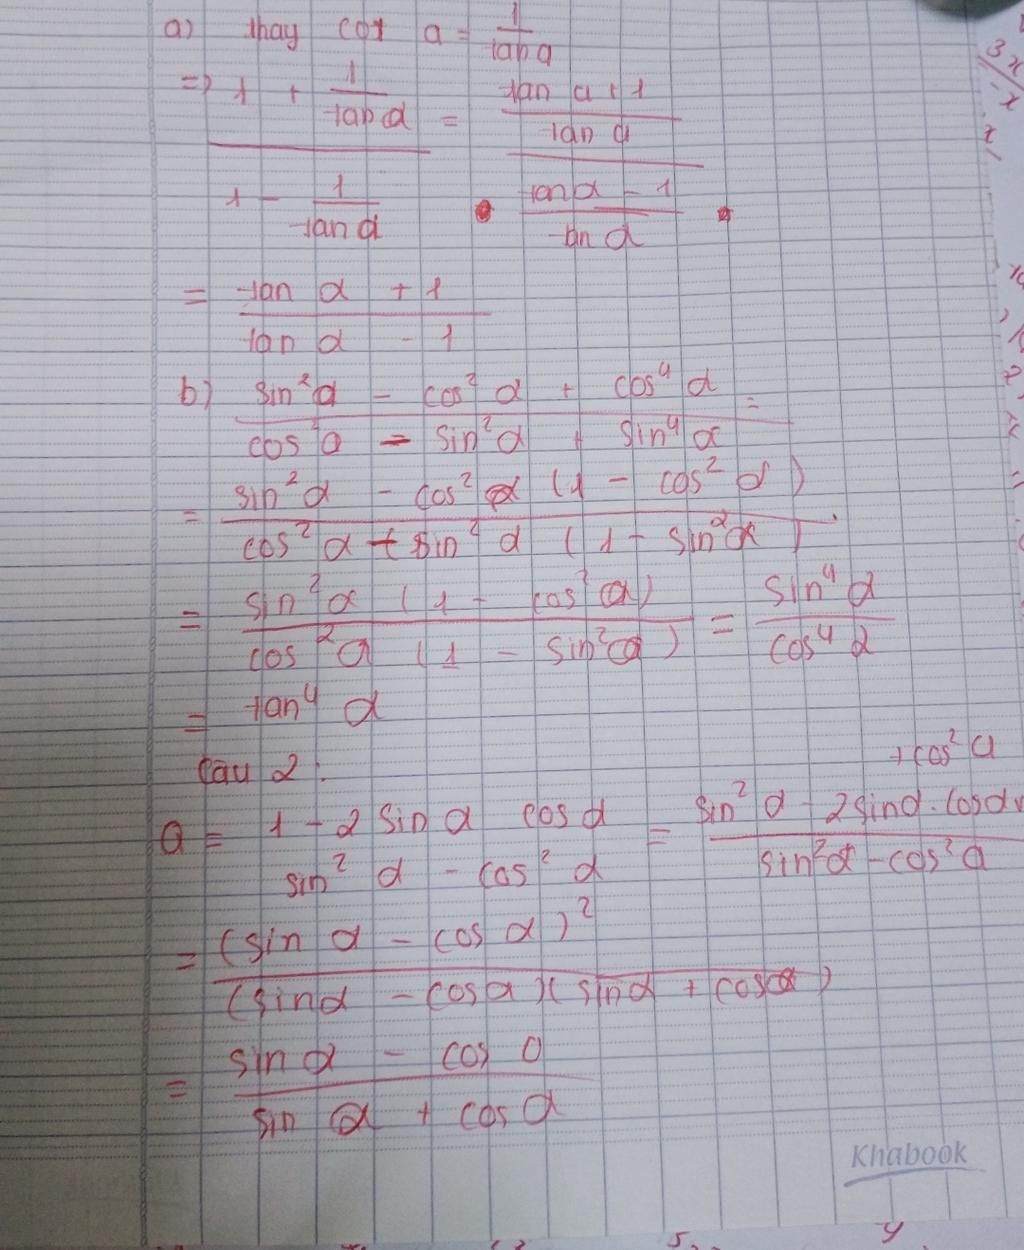 a) thay cot a = 1/tan a
=> (1 + 1/tan α)/(1 - 1/tan α) = ((tan α + 1)/tan α)/((tan α - 1)/tan α)
= (tan α + 1)/(tan α - 1)
b) (sin² α - cos² α + cos⁴ α)/(cos² α - sin² α + sin⁴ α) =
= (sin² α - cos² α (1 - cos² α))/(cos² α - sin² α (1 - sin² α))
= (sin² α (1 - cos² α))/(cos² α (1 - sin² α)) = sin⁴ α/cos⁴ α
= tan⁴ α
Câu 2:
Q = (1 - 2 sin α cos α)/(sin² α - cos² α) = (sin² α - 2 sin α . cos α + cos² α)/(sin² α - cos² α)
= (sin α - cos α)²/((sin α - cos α)(sin α + cos α))
= (sin α - cos α)/(sin α + cos α)
Khabook